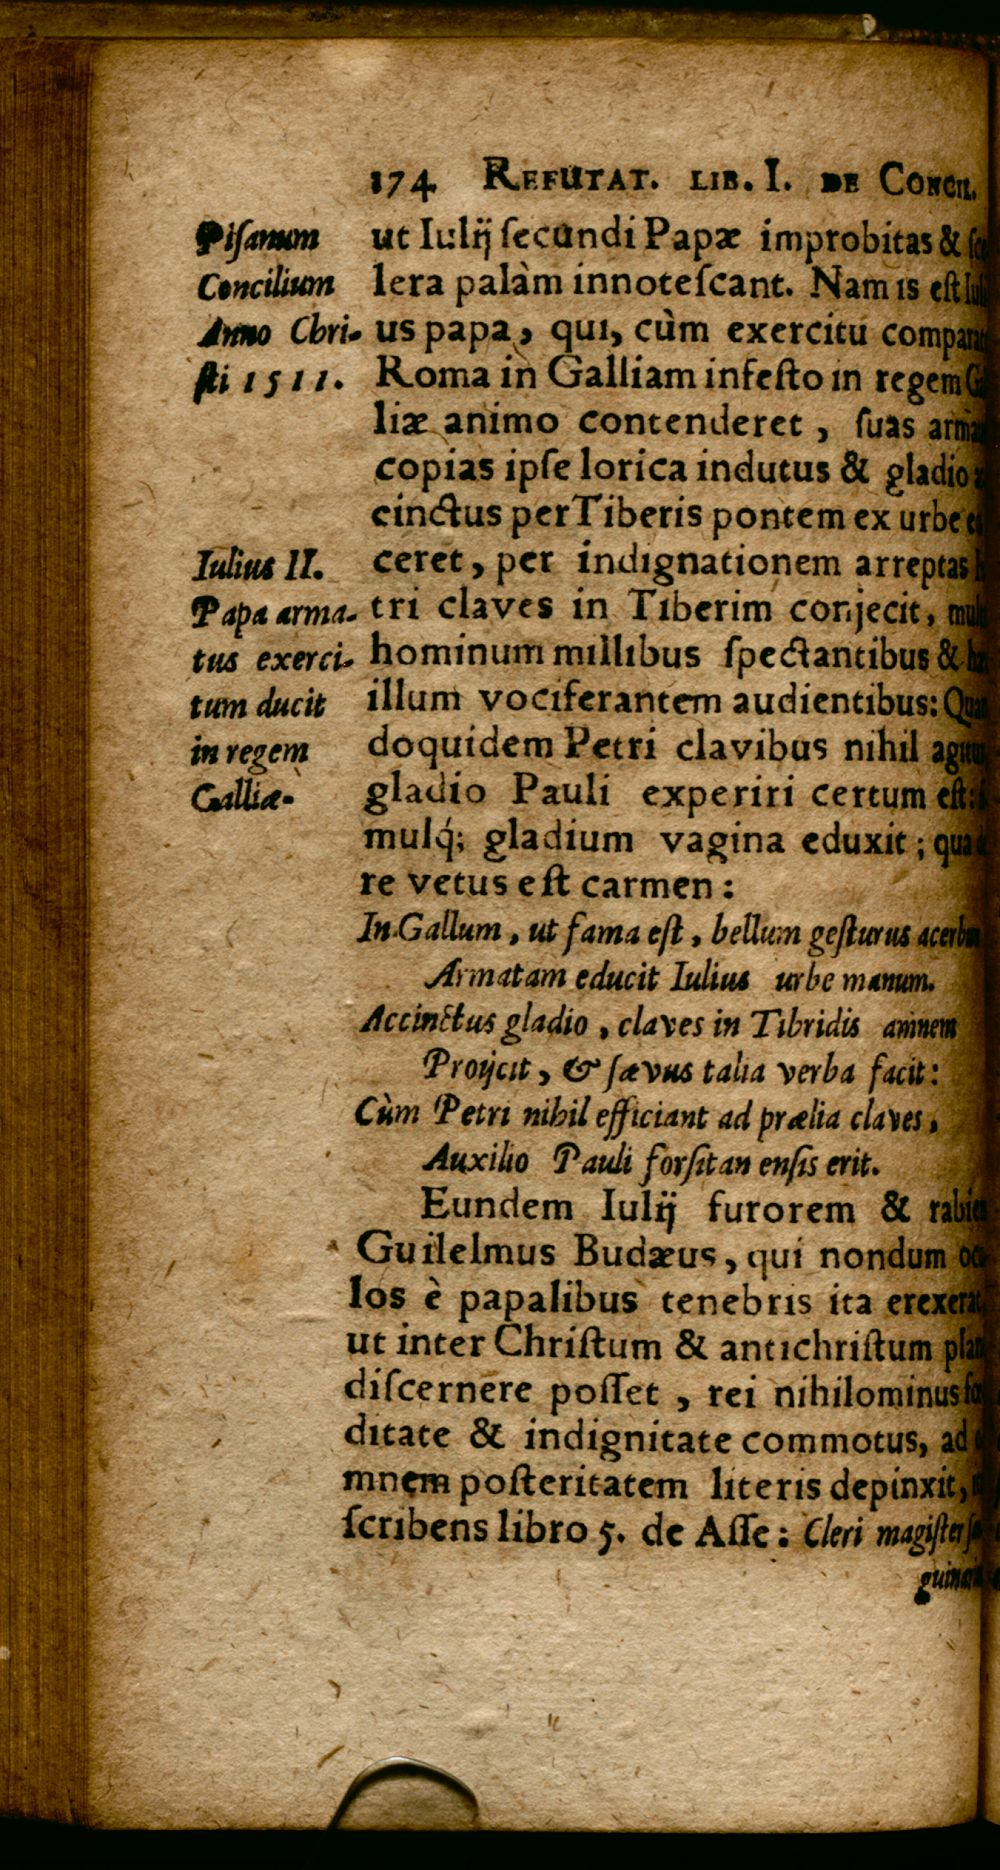 174 REFUTAT. LIB. I. DE CONCIL.
Piſanum
Concilium
Anno Chri-
ſti 1511.
Iulius II.
Papa arma-
tus exerci-
tum ducit
in regem
Galliæ.
ut Iulij ſecundi Papæ improbitas &
lera palàm innoteſcant. Nam is eſt
us papa, qui, cùm exercitu
Roma in Galliam infeſto in regem
liæ animo contenderet, ſuas
copias ipſe lorica indutus & gladio
cinctus per Tiberis pontem ex urbe
ceret, per indignationem arreptas
tri claves in Tiberim conjecit,
hominum millibus ſpectantibus &
illum vociferantem audientibus:
doquidem Petri clavibus nihil
gladio Pauli experiri certum eſt:
mulq́; gladium vagina eduxit; qua
re vetus eſt carmen:
In Gallum, ut fama eſt, bellum geſturus
Armatam educit Iulius urbe manum.
Accinctus gladio, claves in Tibridis amnem
Proijcit, & ſævus talia verba facit:
Cùm Petri nihil efficiant ad prælia claves,
Auxilio Pauli forſitan enſis erit.
Eundem Iulij furorem &
Guilelmus Budæus, qui nondum
los è papalibus tenebris ita
ut inter Chriſtum & antichriſtum
diſcernere poſſet, rei nihilominus
ditate & indignitate commotus, ad
mnem poſteritatem literis depinxit,
ſcribens libro 5. de Aſſe: Cleri magiſter